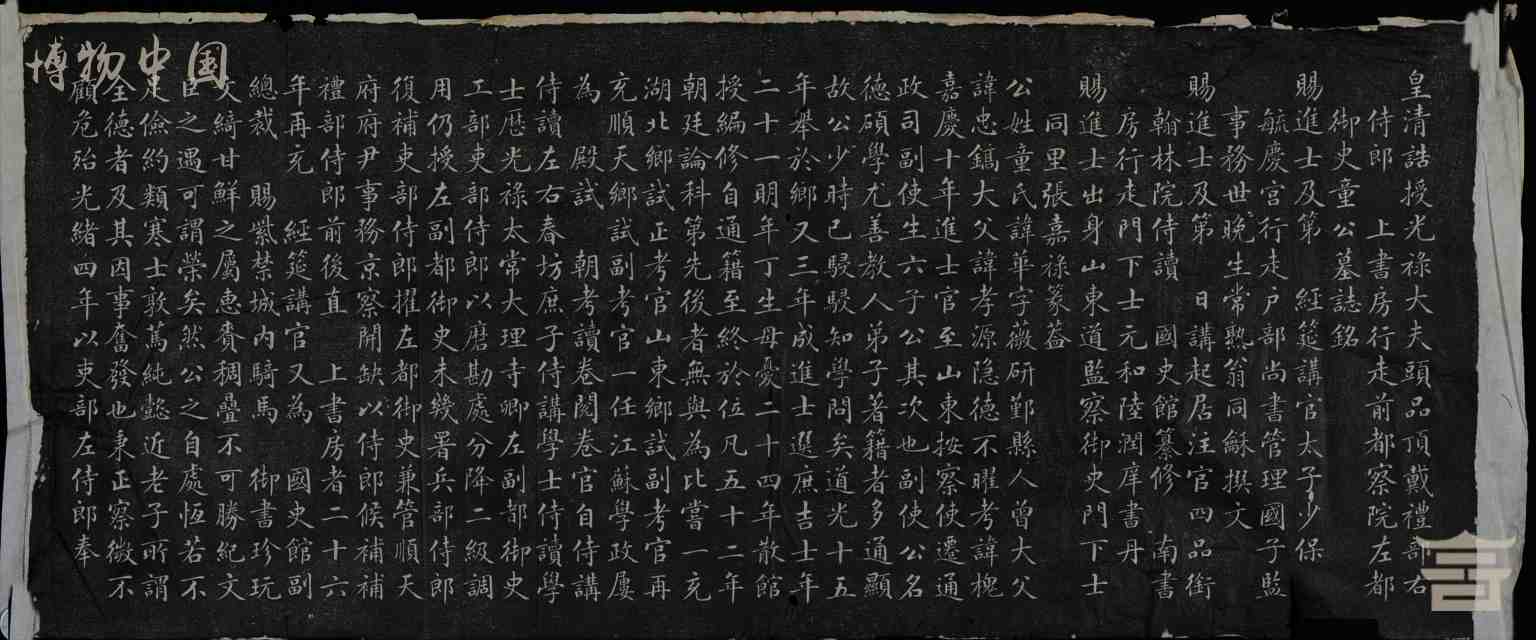 皇清誥授光祿大夫頭品頂戴禮部右
侍郎 上書房行走前都察院左都
御史童公墓誌銘
賜進士及第 經筵講官太子少保
毓慶宮行走戶部尚書管理國子監
事務世晚生常熟翁同龢撰文
賜進士及第 日講起居注官四品銜
翰林院侍讀 國史館纂修 南書
房行走門下士元和陸潤庠書丹
賜進士出身山東道監察御史門下士
同里張嘉祿篆蓋
公姓童氏諱華字薇研鄞縣人曾大父
諱忠鎬大父諱孝源隱德不曜考諱槐
嘉慶十年進士官至山東按察使遷通
政司副使生六子公其次也副使公名
德碩學尤善教人弟子著籍者多通顯
故公少時已駸駸知學問矣道光十五
年舉於鄉又三年成進士選庶吉士年
二十一明年丁生母憂二十四年散館
授編修自通籍至終於位凡五十二年
朝廷論科第先後者無與為比嘗一充
湖北鄉試正考官山東鄉試副考官再
充順天鄉試副考官一任江蘇學政屢
為 殿試 朝考讀卷閱卷官自侍講
侍讀左右春坊庶子侍講學士侍讀學
士歷光祿太常大理寺卿左副都御史
工部吏部侍郎以磨勘處分降二級調
用仍授左副都御史未幾署兵部侍郎
復補吏部侍郎擢左都御史兼管順天
府府尹事務京察開缺以侍郎候補補
禮部侍郎前後直 上書房者二十六
年再充 經筵講官又為 國史館副
總裁 賜紫禁城內騎馬 御書珍玩
文綺甘鮮之屬恵賚稠疊不可勝紀文
臣之遇可謂榮矣然公之自處恆若不
足儉約類寒士敦篤純懿近老子所謂
全德者及其因事奮發也秉正察微不
顧危殆光緒四年以吏部左侍郎奉
博物中国